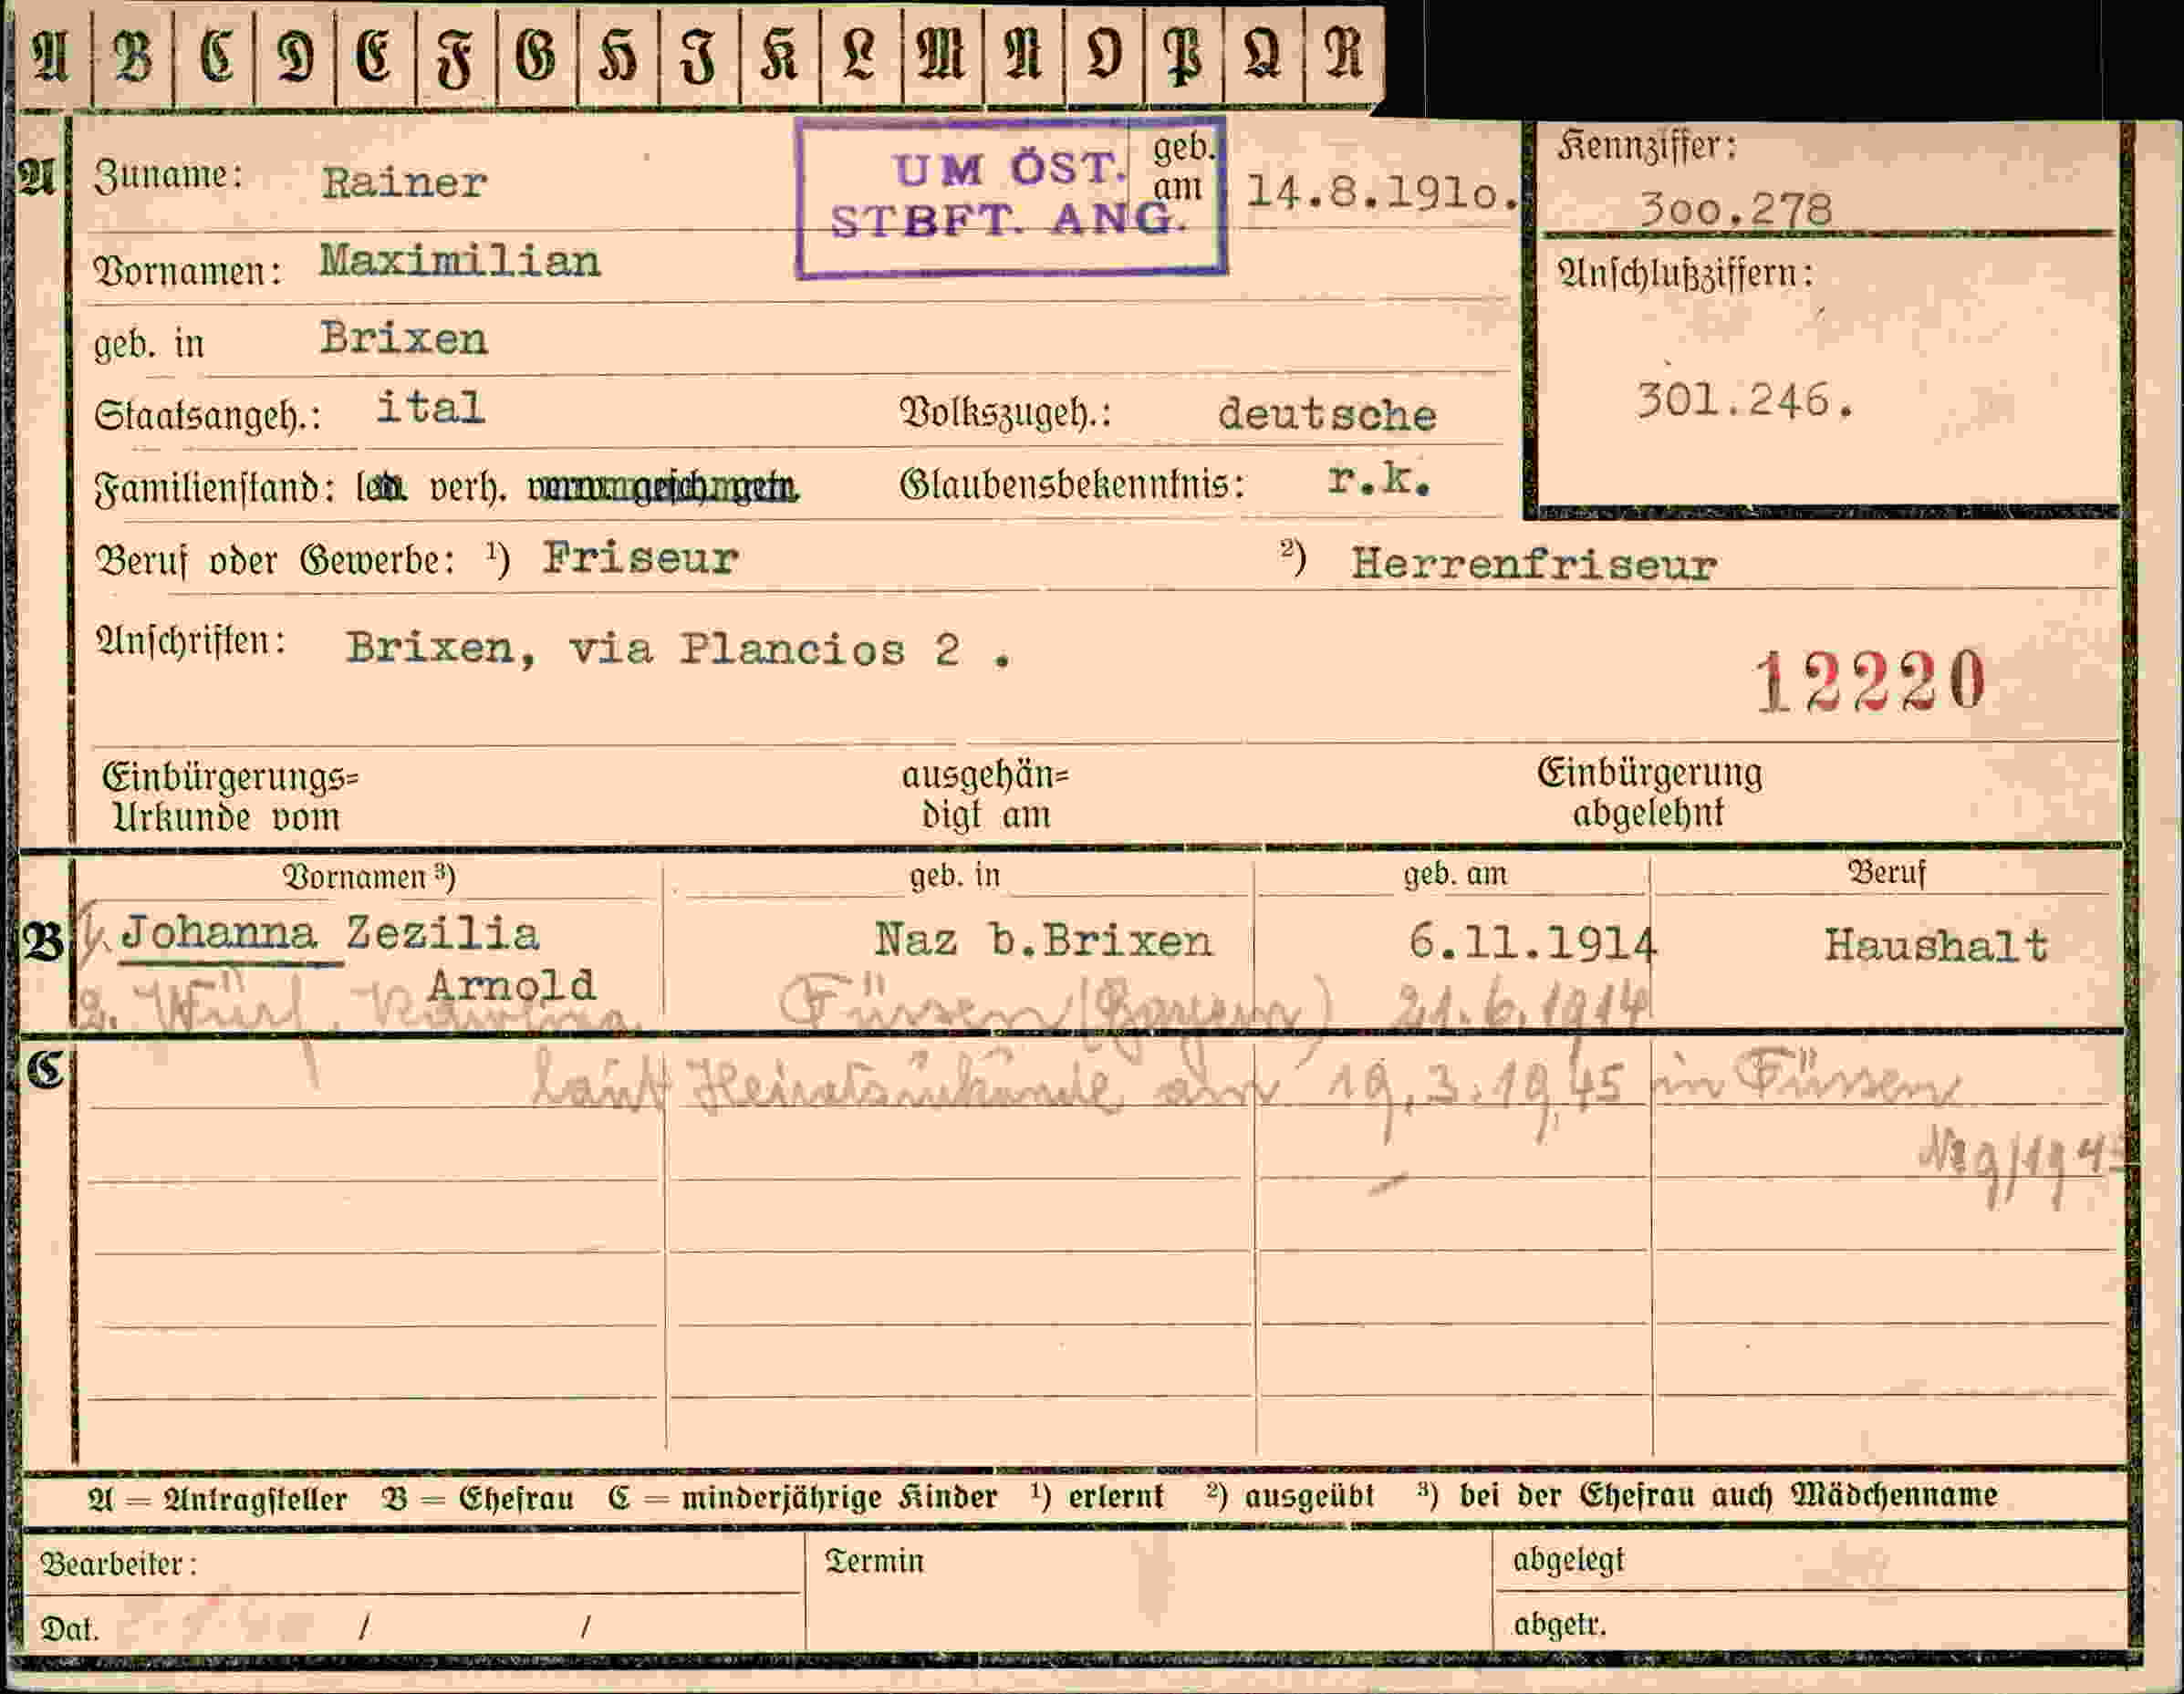 A B C D E F G H I K L M N O P Q R
A Zuname: Rainer
UM ÖST.
STBFT. ANG.
geb.
am 14.8.191o.
Kennziffer:
3oo.278
Vornamen: Maximilian
Anschlußziffern:
301.246.
geb. in Brixen
Staatsangeh.: ital Volkszugeh.: deutsche
Familienstand: verh. Glaubensbekenntnis: r.k.
Beruf oder Gewerbe: ¹) Friseur ²) Herrenfriseur
Anschriften: Brixen, via Plancios 2 .
12220
Einbürgerungs=
Urkunde vom
ausgehän=
digt am
Einbürgerung
abgelehnt
Vornamen ³) geb. in geb. am Beruf
B 1. Johanna Zezilia Naz b.Brixen 6.11.1914 Haushalt
Arnold
2. Füssen (Bayern) 21.6.1914
C
laut Heiratsurkunde am 19.3.1945 in Füssen
A = Antragsteller B = Ehefrau C = minderjährige Kinder ¹) erlernt ²) ausgeübt ³) bei der Ehefrau auch Mädchenname
Bearbeiter: Termin abgelegt
Dat. / / abgetr.